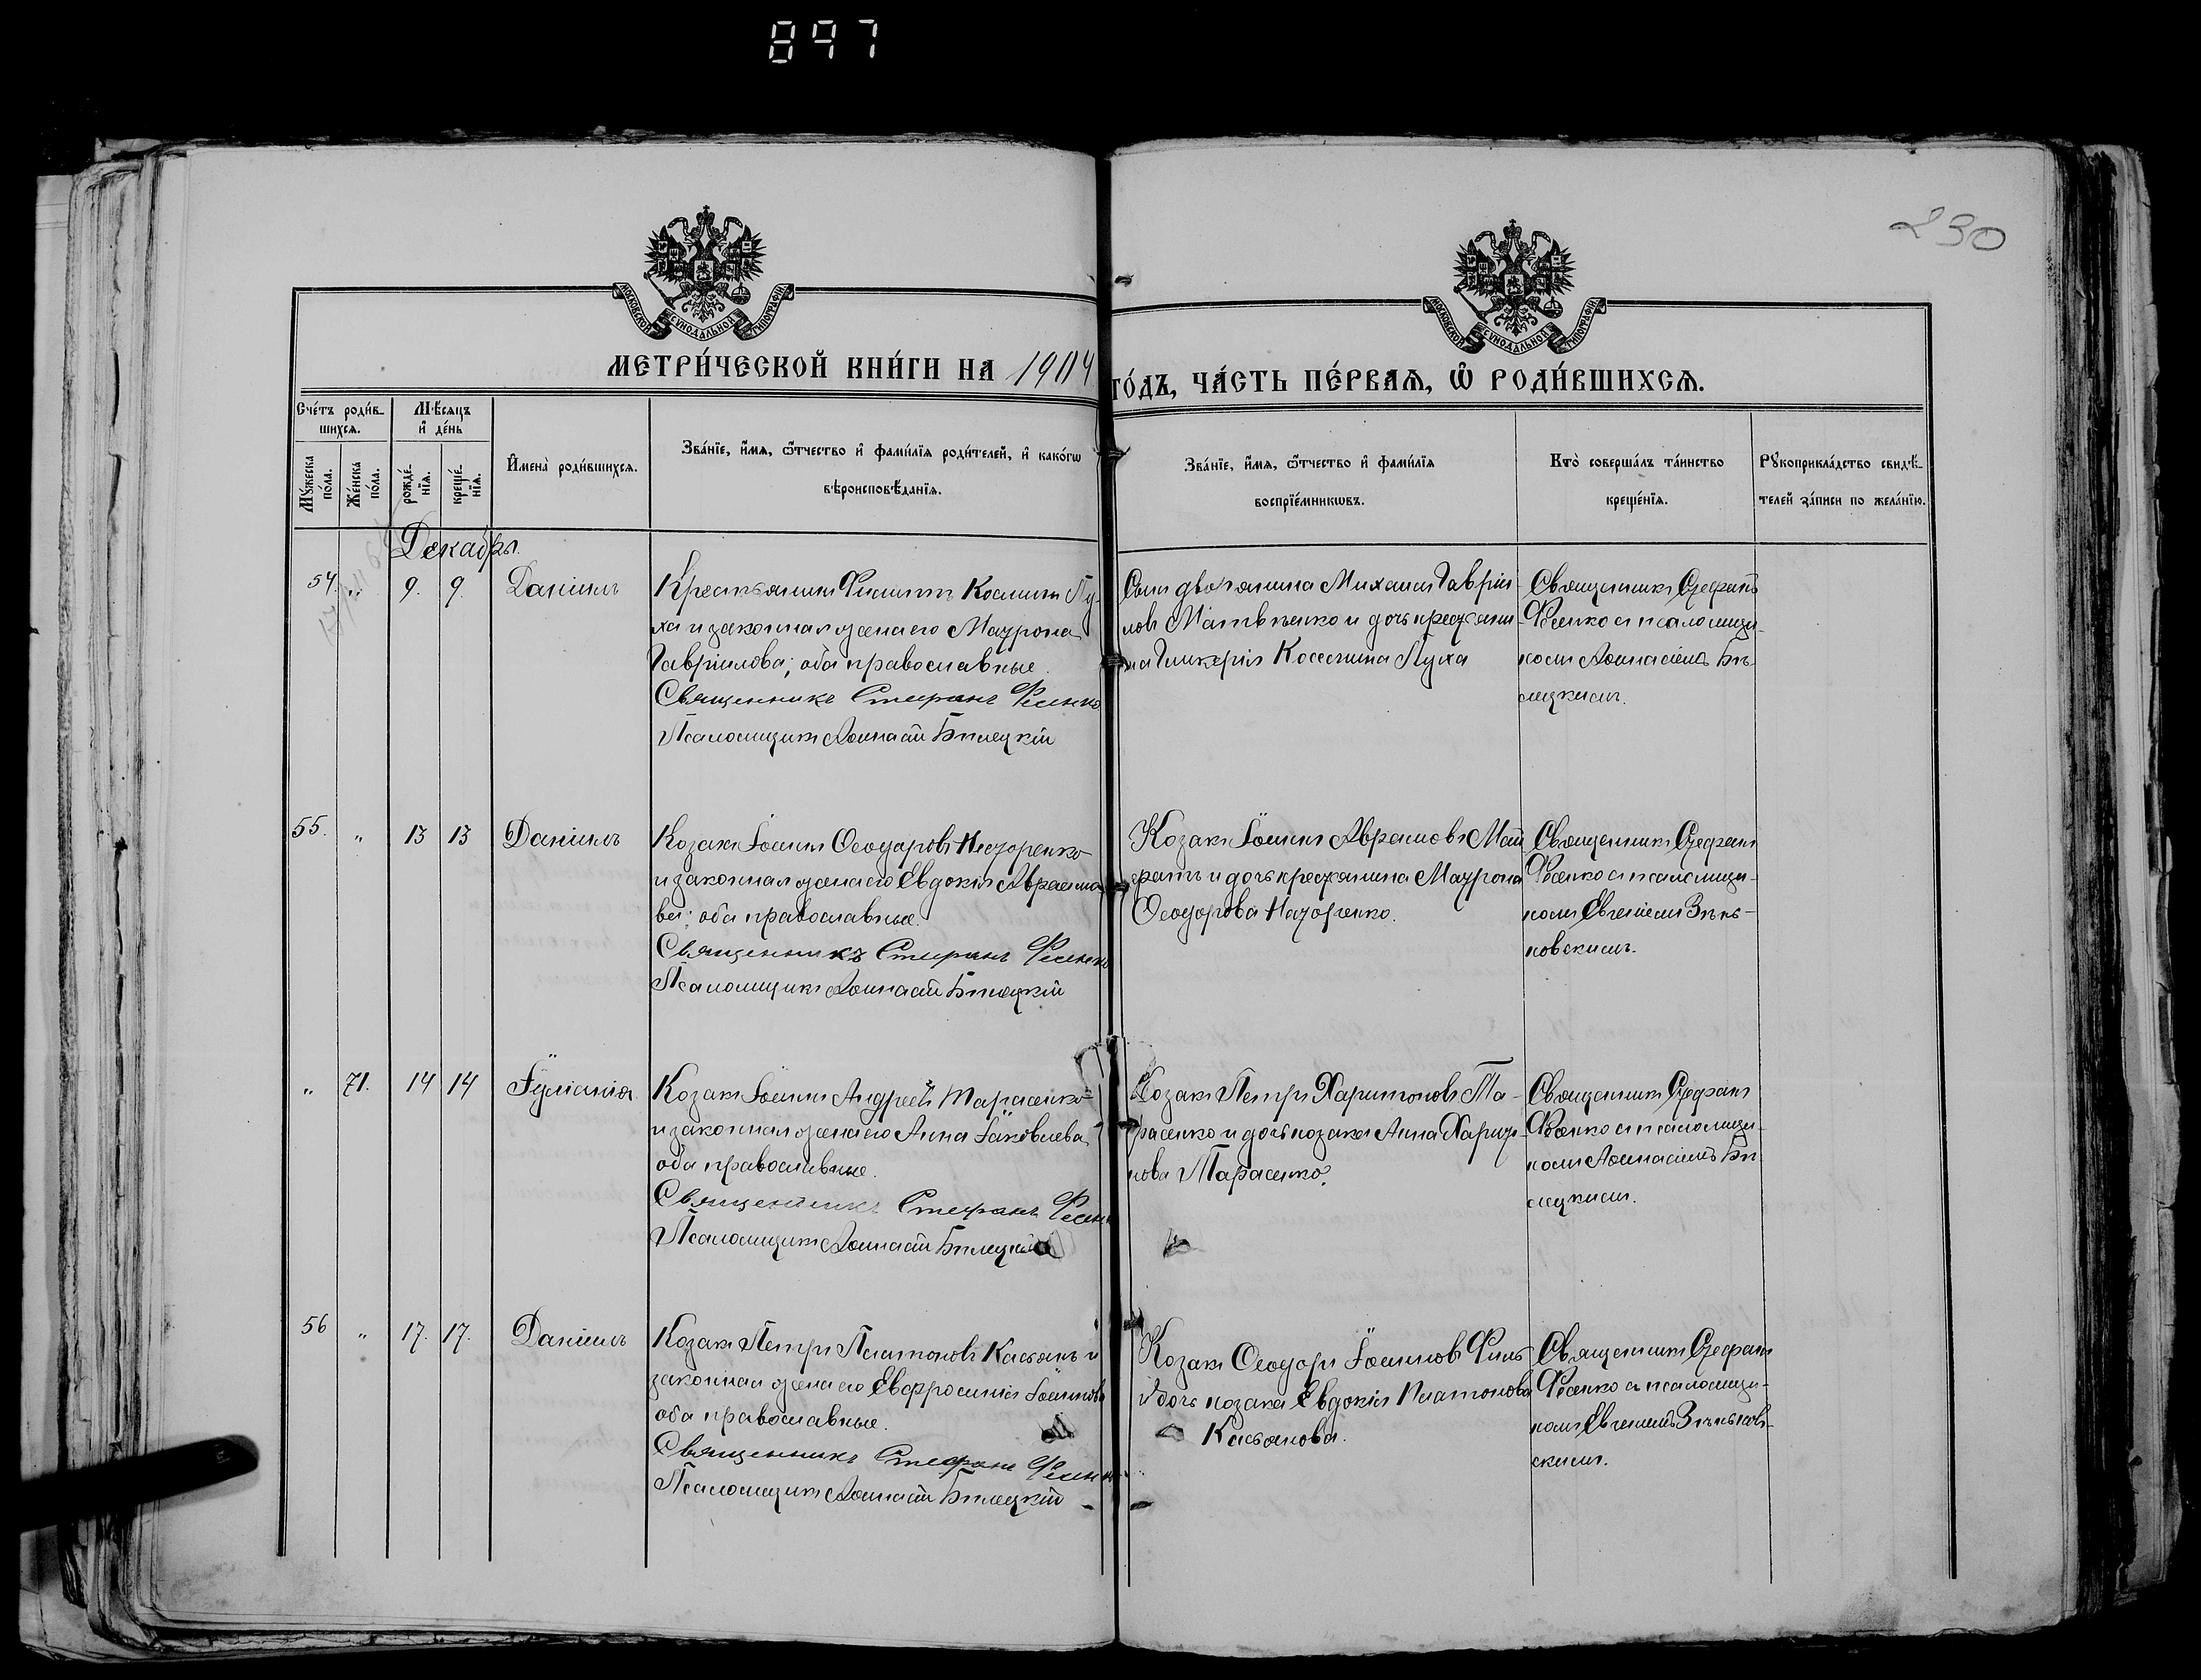 897
230
МОСКОВСКОЙ СѴНОДАЛЬНОЙ ТИПОГРАФІИ
МОСКОВСКОЙ СѴНОДАЛЬНОЙ ТИПОГРАФІИ
МЕТРИ́ЧЕСКОЙ КНИ́ГИ НА 1904
ГО́ДЪ, ЧА́СТЬ ПЕ́РВАѦ, Ѡ҆ РОДИ́ВШИХСѦ.
Сче́тъ роди́в-
шихсѧ.
Мѣ́сѧцъ
и҆ де́нь
Мꙋ́жеска
по́ла.
Же́нска
по́ла.
рожде́-
нїѧ.
креще́-
нїѧ.
И҆мена̀ роди́вшихсѧ.
Зва́нїе, и҆́мѧ, ѻ҆́тчество и҆ фамѝлїѧ роди́телей, и҆ како́гѡ
вѣроисповѣ́данїѧ.
Зва́нїе, и҆́мѧ, ѻ҆́тчество и҆ фами́лїѧ
воспрїе́мникѡвъ.
Кто̀ соверша́лъ та́инство
креще́нїѧ.
Рꙋкоприкла́дство свидѣ́-
телей за́писи по жела́нїю.
Декабрь.
54. " 9. 9. Даніилъ
Крестьянинъ Филиппъ Косминъ Пу-
ха и законная жена его Маурона
Гавріилова; оба православные.
Священникъ Стефанъ Фесенко
Псаломщикъ Аѳанасій Билецкій
Сынъ дворянина Михаилъ Гавріи-
ловъ Матвѣенко и дочь крестьяни-
на Гликерія Космина Пуха
Священникъ Стефанъ
Фесенко съ псаломщи-
комъ Аѳанасіемъ Би-
лецкимъ.
55. " 13 13 Даніилъ
Козакъ Іоаннъ Ѳеодоровъ Назаренко
и законная жена его Евдокія Аврамо-
ва; оба православные.
Священникъ Стефанъ Фесенко
Псаломщикъ Аѳанасій Билецкій
Козакъ Іоаннъ Аврамовъ
и дочь крестьянина Маурона
Ѳеодорова Назаренко.
Священникъ Стефанъ
Фесенко съ псаломщи-
комъ Евгеніемъ Зѣнь-
ковскимъ.
" 71. 14 14 Іуліанія.
Козакъ Іоаннъ Андреевъ Тарасенко
и законная жена его Анна Іаковлева
оба православные.
Священникъ Стефанъ Фесен
Псаломщикъ Аѳанасій Билецкій
Козакъ Петръ Харитоновъ Та-
расенко и дочь козака Анна Харито-
нова Тарасенко.
Священникъ Стефанъ
Фесенко съ псаломщи-
комъ Аѳанасіемъ Би-
лецкимъ.
56 " 17. 17. Даніилъ
Козакъ Петръ Платоновъ Касьянъ и
законная жена его Евфросинія Іоаннова
оба православные.
Священникъ Стефанъ Фесенко
Псаломщикъ Аѳанасій Билецкій
Козакъ Ѳеодоръ Іоанновъ Филь
и дочь козака Евдокія Платонова
Касьянова.
Священникъ Стефанъ
Фесенко съ псаломщи-
комъ Евгеніемъ Зѣньков-
скимъ.